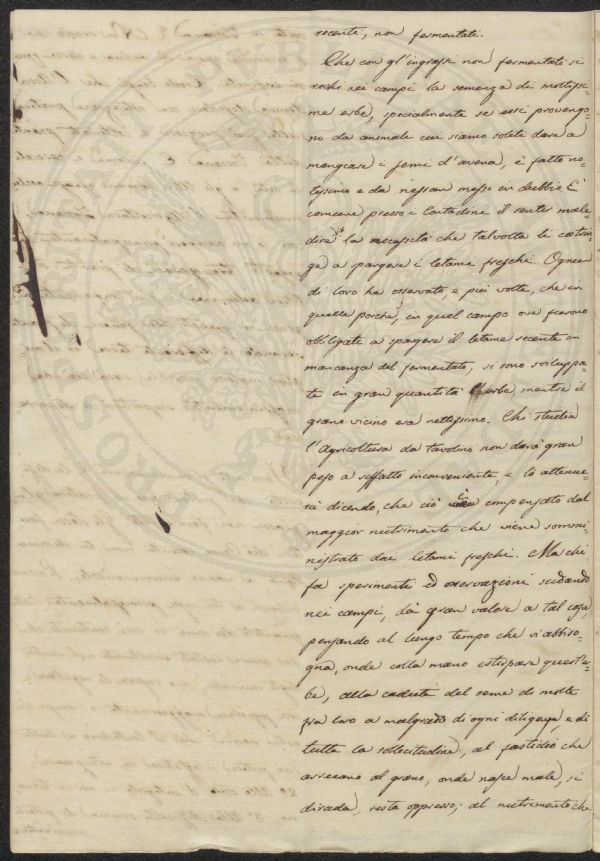 recente, non fermentati.
Che con gl'ingrassi non fermentati si
rechi nei campi la semenza di moltissi-
me erbe, specialmente se essi provengo-
no da animale cui siamo soliti dare a
mangiare i semi d'avena, è fatto no-
tissimo e da nessun messo in dubbio. È
comune presso i Contadini il sentir male-
dire la necessità che talvolta li costrin-
ge a spargere i letami freschi. Ognun
di loro ha osservato, e più volte, che in
quelle porche, in quel campo ove furono
obbligati a spargere il letame recente in
mancanza del fermentato, si sono sviluppa-
te in gran quantità l'erbe, mentre il
grano vicino era nettissimo. Chi studia
l'Agricoltura da tavolino non darà gran
peso a siffatto inconveniente, e lo attenue-
rà dicendo, che ciò è compensato dal
maggior nutrimento che viene sommi-
nistrato dai letami freschi. Ma chi
fa sperimenti ed osservazioni sudando
nei campi, dà gran valore a tal cosa,
pensando al lungo tempo che vi abbiso-
gna, onde colla mano estirpare quest'er-
be, alla caduta del seme di molte
fra loro a malgrado di ogni diligenza, e di
tutta la sollecitudine, al fastidio che
arrecano al grano, onde nasce male, si
dirada, resta oppresso; al nutrimento che